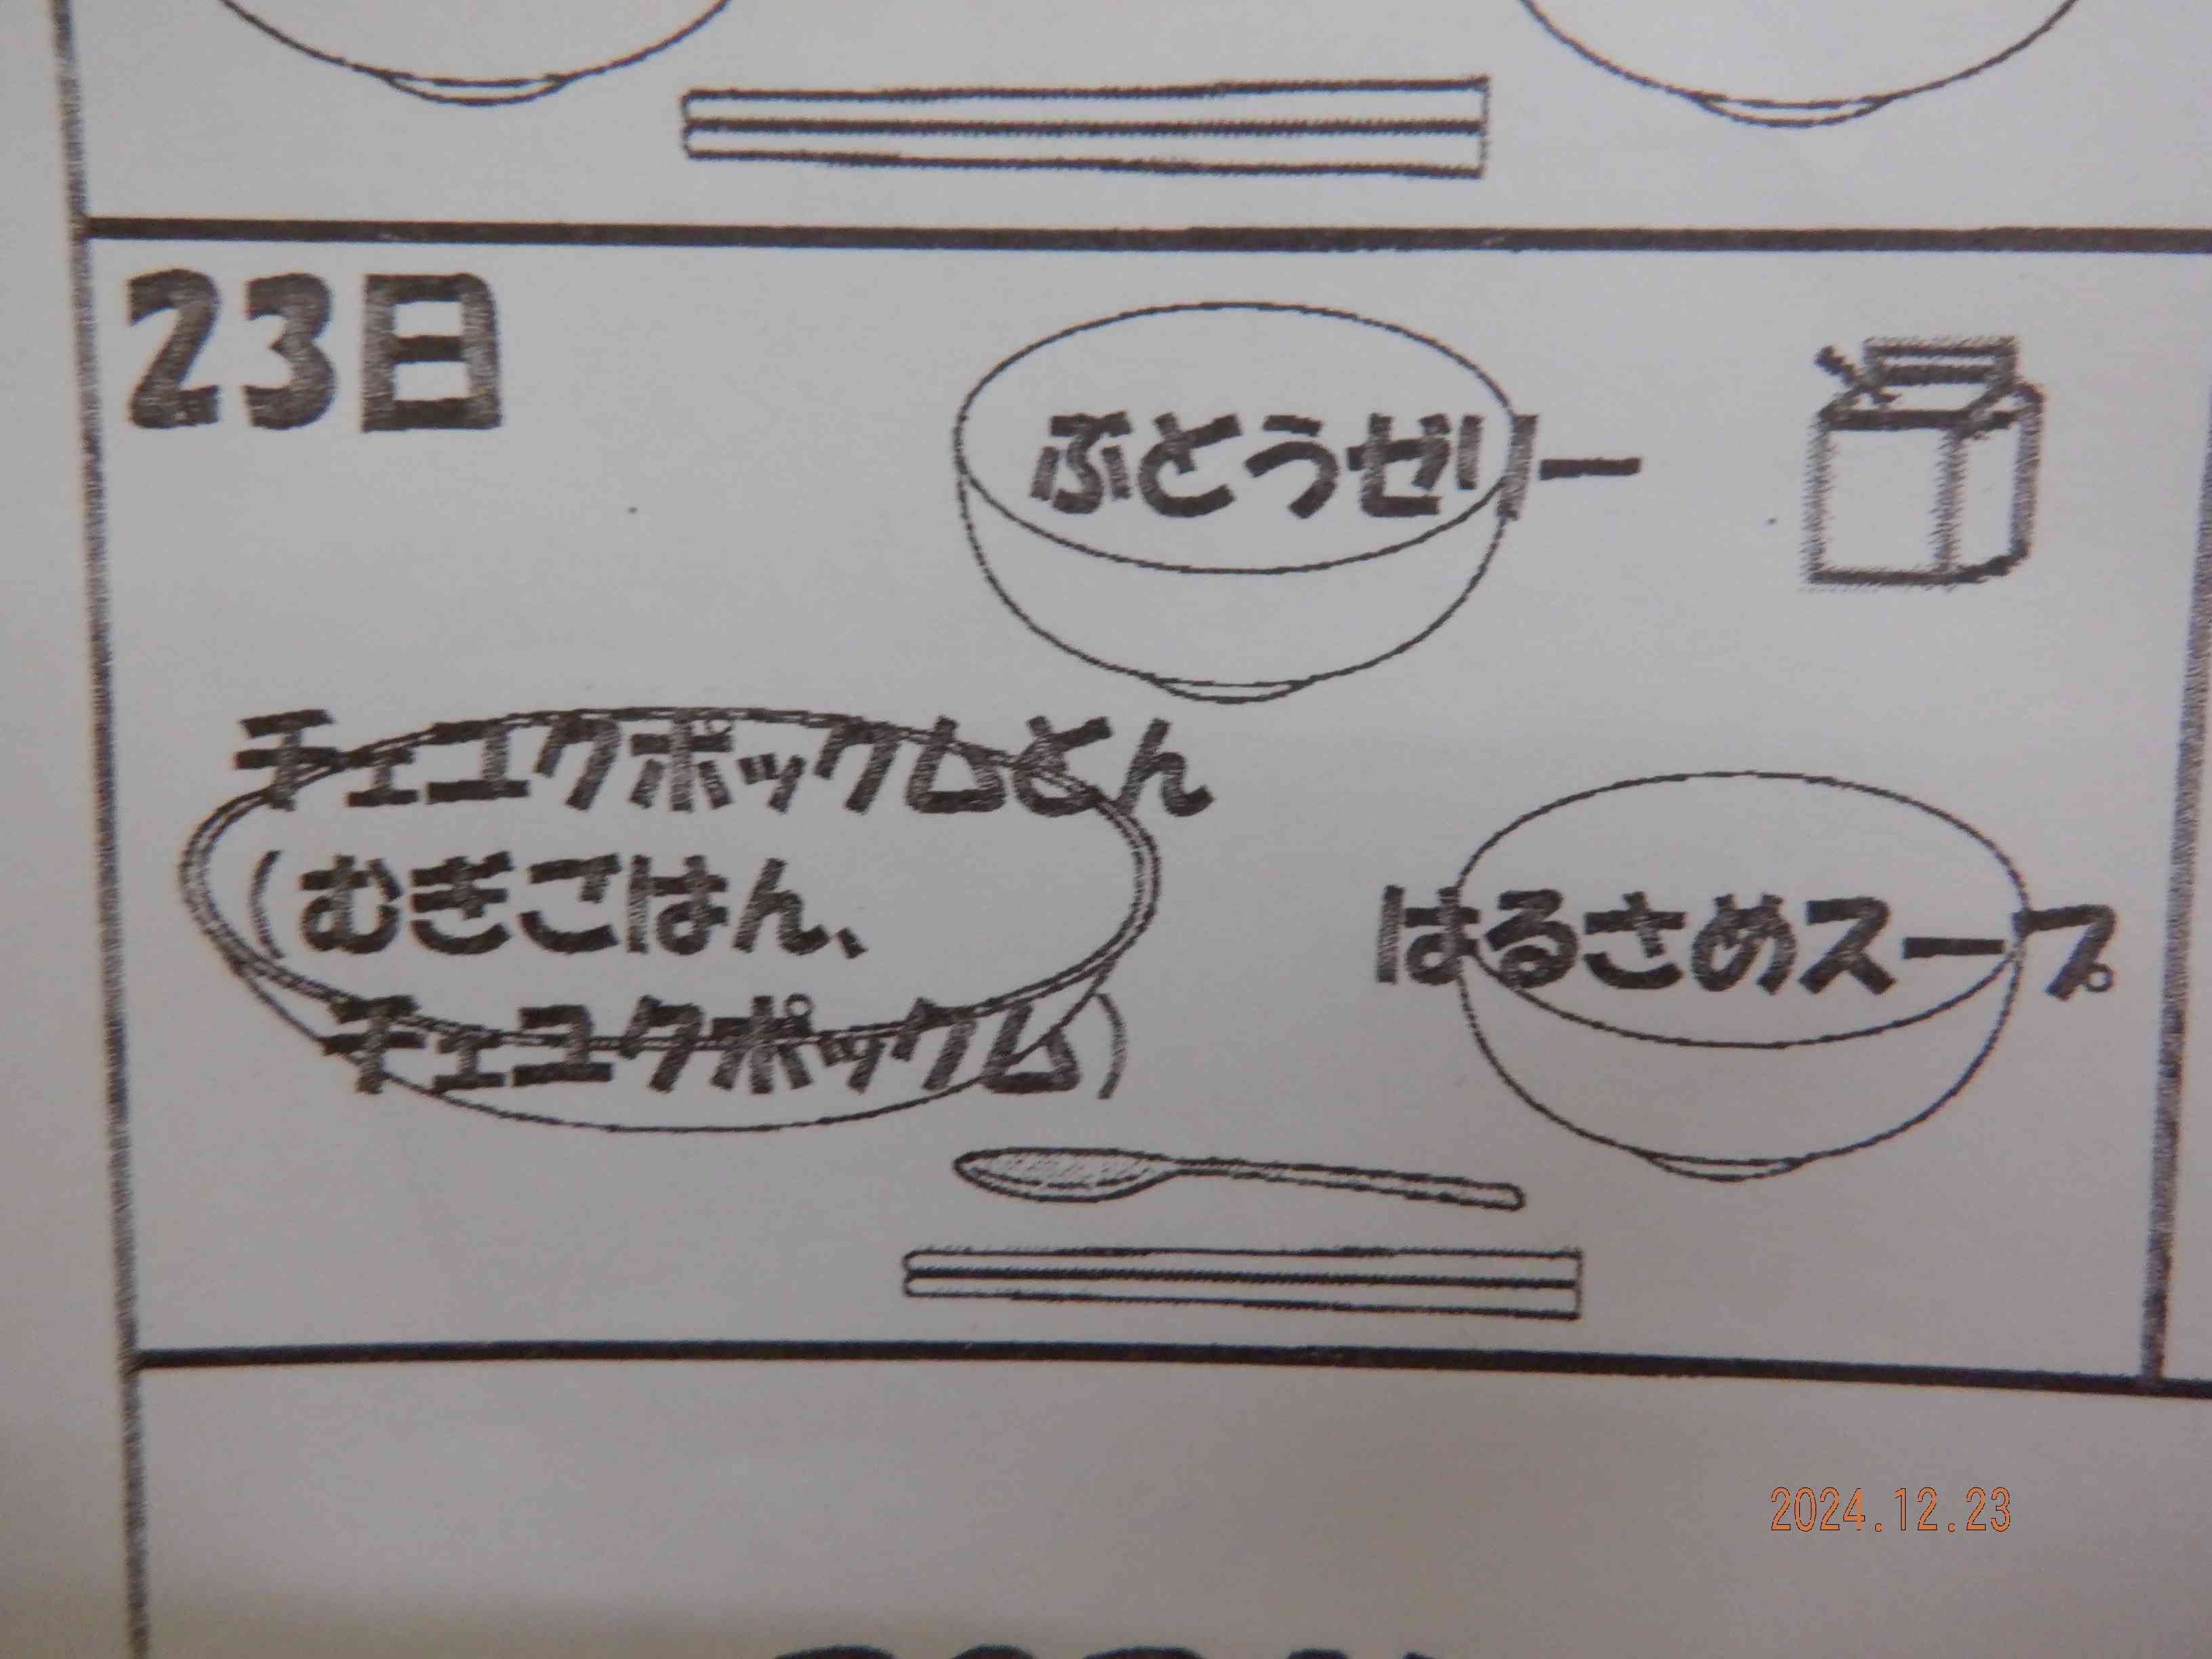 23日
ぶどうゼリー
チェユクポックムどん
(むぎごはん、
チェユクポックム)
はるさめスープ
2024.12.23